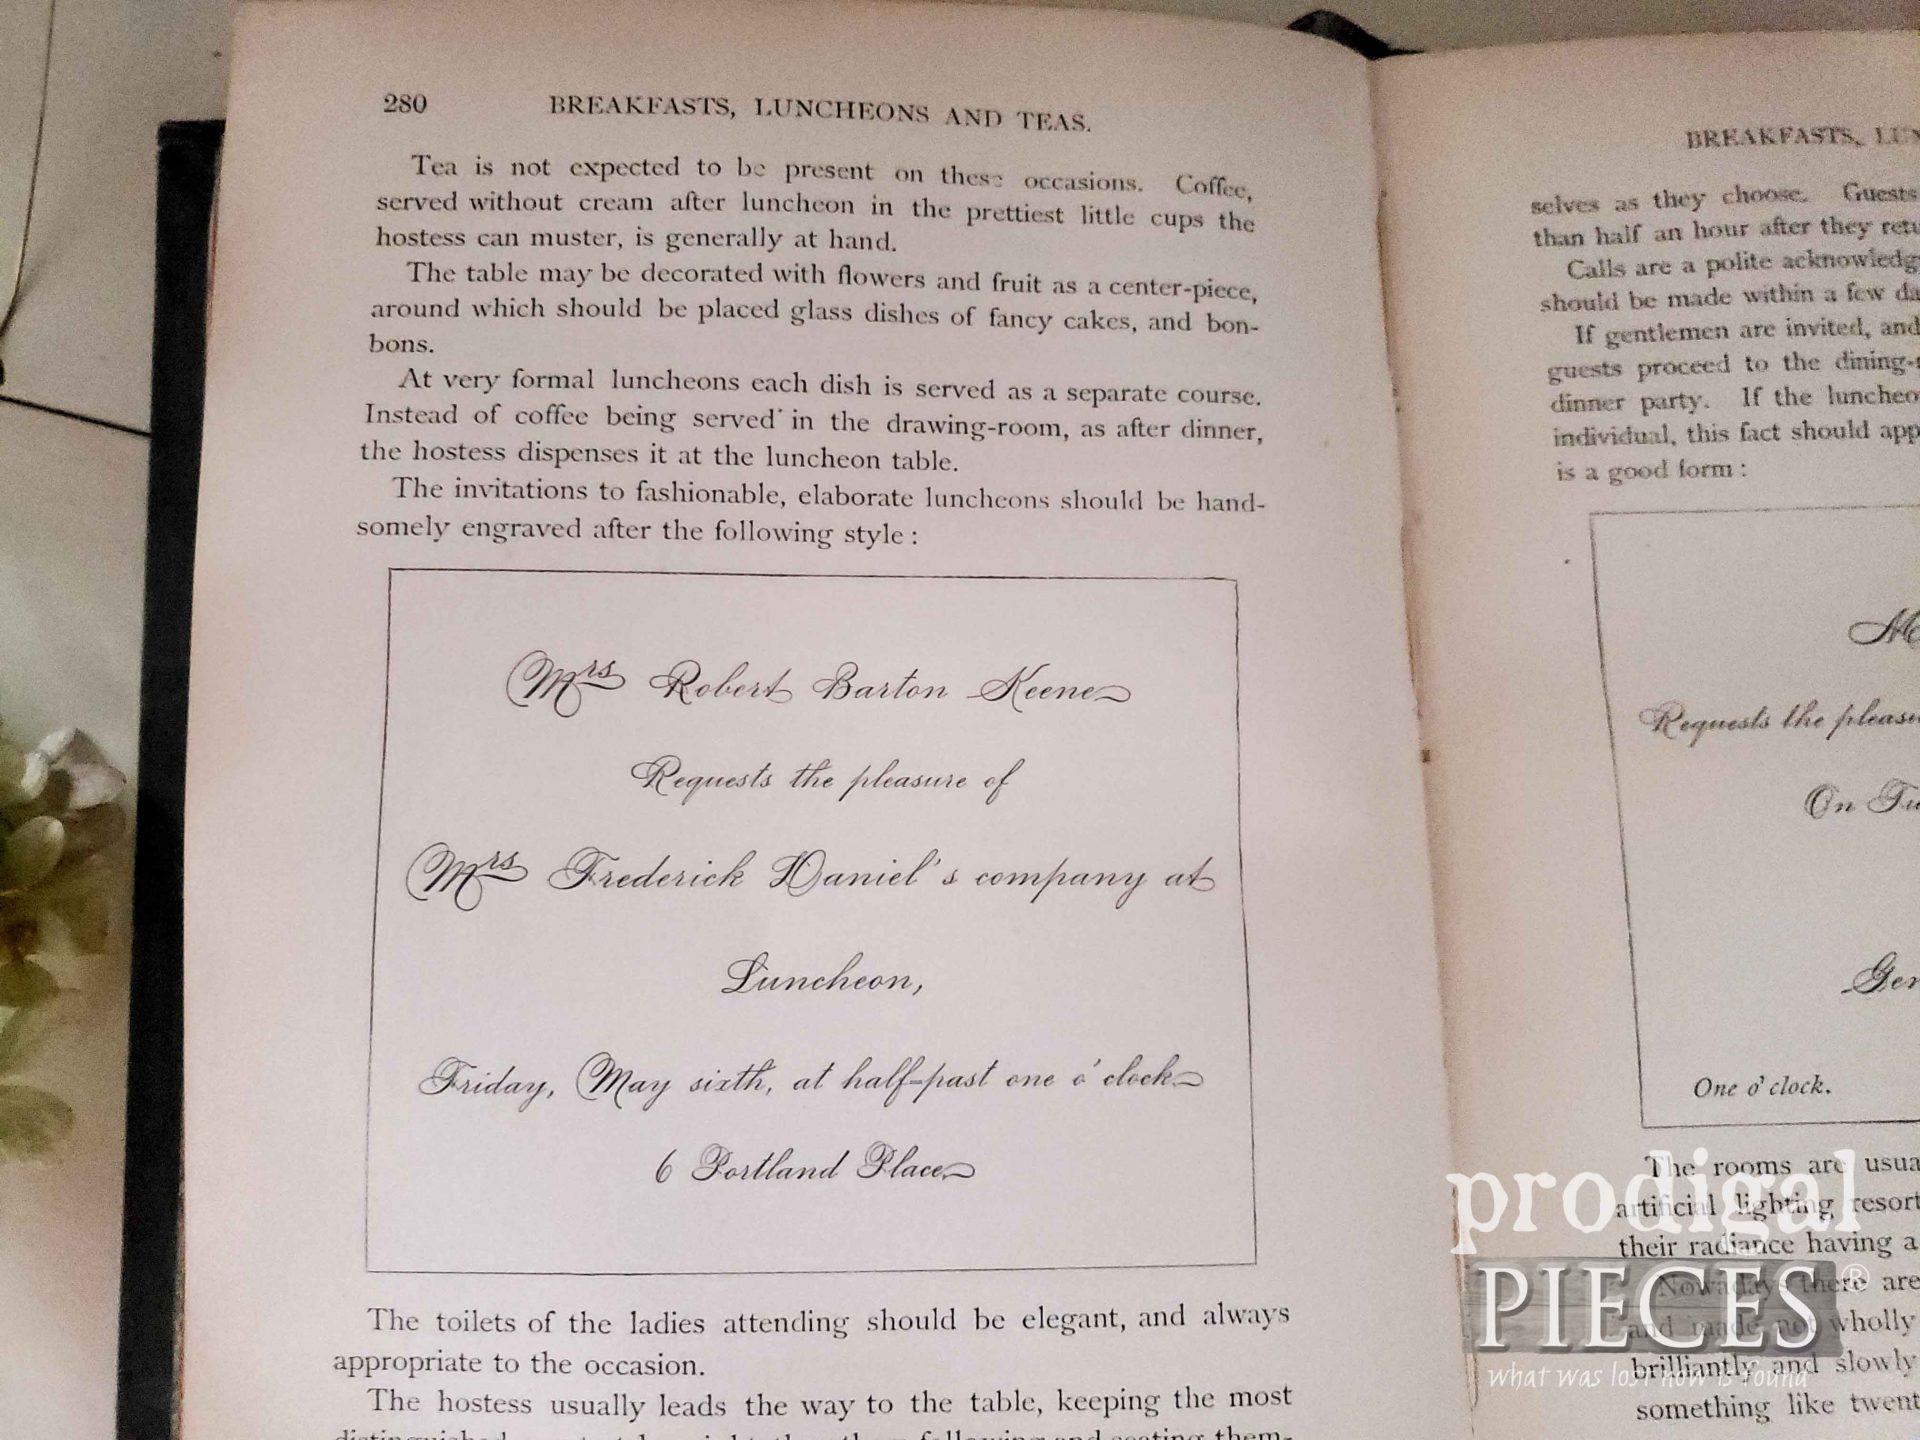 280 BREAKFASTS, LUNCHEONS AND TEAS.
Tea is not expected to be present on these occasions. Coffee,
served without cream after luncheon in the prettiest little cups the
hostess can muster, is generally at hand.
The table may be decorated with flowers and fruit as a center-piece,
around which should be placed glass dishes of fancy cakes, and bon-
bons.
At very formal luncheons each dish is served as a separate course.
Instead of coffee being served in the drawing-room, as after dinner,
the hostess dispenses it at the luncheon table.
The invitations to fashionable, elaborate luncheons should be hand-
somely engraved after the following style :
Mrs Robert Barton Keene
Requests the pleasure of
Mrs Frederick Daniel's company at
Luncheon,
Friday, May sixth, at half-past one o'clock
6 Portland Place
The toilets of the ladies attending should be elegant, and always
appropriate to the occasion.
The hostess usually leads the way to the table, keeping the most
BREAKFASTS,
selves as they choose. Guests
than half an hour after they
Calls are a polite
should be made within a few
If gentlemen are invited, and
guests proceed to the
dinner party. If the
individual, this fact should
is a good form :
Requests the
On
One o'clock.
The rooms are
artificial lighting
their radiance having a
Nowadays there are
and made not wholly
brilliantly and slowly
something like
prodigal
PIECES®
what was lost now is found